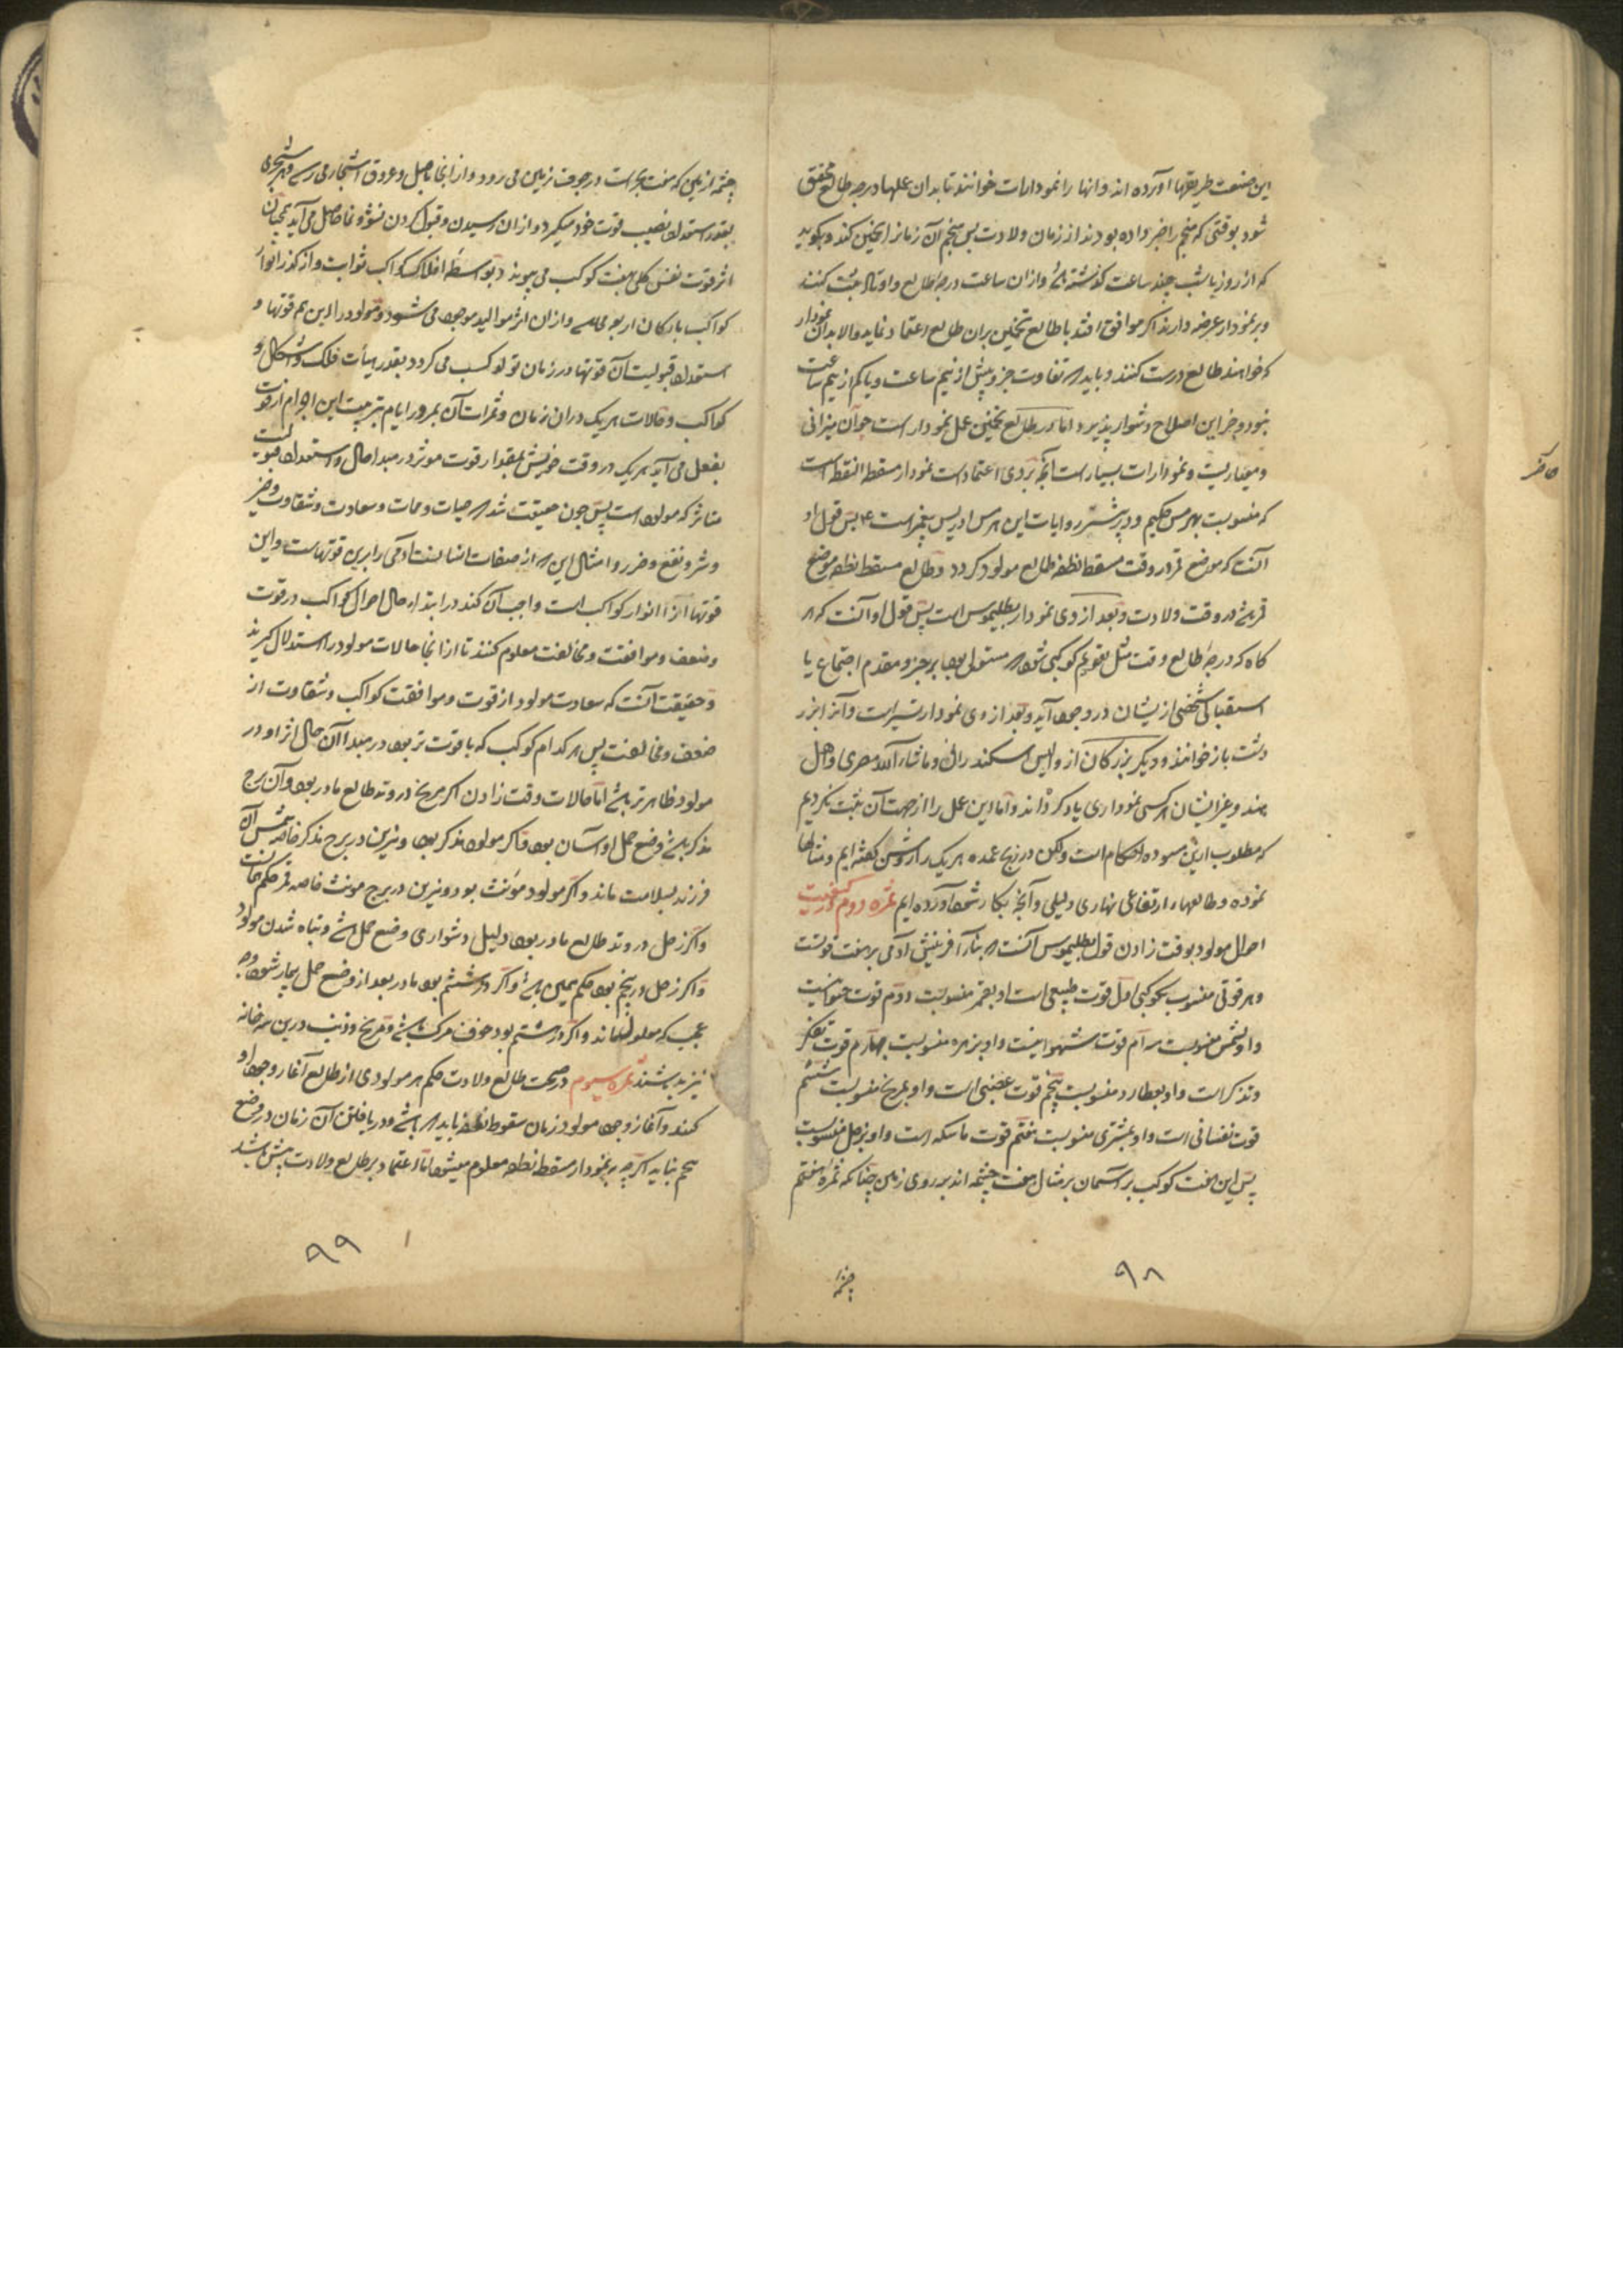 این صنعت طریقها آورده اند و انها را نمودارات خوانند تا بدان عملها درجه طالع محقق
شود بوقتی که منجم را خبر داده بودند از زمان ولادت پس منجم آن زمانرا تخمین کند و بکوید
که از روز یا شب چند ساعت کذشته باشد و ازان ساعت درجه طالع و اوتاد ثبت کنند
و بر نمودار عرضه دارند اکر موافق افتد با طالع تخمین بران طالع اعتماد نماید و الا بدان نمودار
که خواهند طالع درست کنند و باید که تفاوت جز و بیش از نیم ساعت و یا کم از نیم ساعت
نبود و جز این اصلاح دشوار پذیرد اما بر طالع تخمین عمل نمودار است چو آن میزانی
و معیاریست و نمودارات بسیار است آنچه بر وی اعتماد است نمودار مسقط النقطه است
که منسوبست بهرمس حکیم و در بیشتر روایات این هرمس ادریس پیغمبر است ع پس قول او
آنست که موضع قمر در وقت مسقط نطفه طالع مولود کردد و طالع مسقط نطفه موضع
قمر باشد در وقت ولادت و بعد از وی نمودار بطلیموس است پس قول او آنست که هر
کاه که درجه طالع وقت مثل تقویم کوکبی شود که مستولی بود بر جزو مقدم اجتماع یا
استقبالی شخصی ازیشان در وجود آید و بعد از وی نمودار تیسیر است و آنرا بزر
دشت باز خوانند و دیکر بزرکان از والیس اسکندرانی و ماشاء الله مصری و اهل
هند و غیر ایشان هر کسی نموداری یاد کرده اند و اما این عمل را از جهت آن ثبت نکردیم
که مطلوب ازین مسوده احکام است ولکن در زیج عمده هر یک را روشن کفته ایم و مثالها
نموده و طالعهاء ارتفاعی نهاری و لیلی و آنچه بکار شود آورده ایم ثمره دوم در کیفیت
احوال مولود بوقت زادن قول بطلیموس آنست که بناء آفرینش آدمی بر هفت قوتست
و هر قوتی منسوب بکوکبی اول قوت طبیعی است او بقمر منسوبست دوم قوت حیوانیست
و او بشمس منسوبست سه ام قوت شهوانیست و او بزهره منسوبست چهارم قوت تفکر
و تذکر است و او بعطارد منسوبست پنجم قوت غضبی است و او بمریخ منسوبست ششم
قوت نفسانی است و او بمشتری منسوبست هفتم قوت ماسکه است و او بزحل منسوبست
پس این هفت کوکب بر آسمان بر مثال هفت چشمه اند بر روی زمین چنانکه ثمره هفتم
۹۸
چشمه از
چشمه از زمین که هفت بحر است در جوف زمین می رود و از آنجا باصل و عروق اشجار می رسد و هر شجری
بقدر استعداد نصیب قوت خود میکیرد و از ان رسیدن و قبول کردن نشو و نما حاصل می آید همچنان
اثر قوت نفس کلی بهفت کوکب می پیوندد بتوسط افلاک کواکب ثوابت و از کذر انوار
کواکب بارکان اربعه می رسد و از ان اثر موالید موجود می شود و مولود را این هم قوتها و
استعداد قبولیت آن قوتها در زمان تولد کسب می کردد بقدر هیأت فلک و اشکال
کواکب و حالات هر یک دران زمان و ثمرات آن بمرور ایام بتربیت این اجرام از قوت
بفعل می آید هر یک در وقت خویش بمقدار قوت موثر در مبدا حال و استعداد قبولیت
متاثر که مولود است پس چون حقیقت شد که حیات و ممات و سعادت و شقاوت و خیر
و شر و نفع و ضرر و امثال این که از صفات انسانست آدمی را برین قوتهاست و این
قوتها از انوار کواکب است واجب آن کند در ابتداء حال احوال کواکب در قوت
و ضعف و موافقت و مخالفت معلوم کنند تا از انجا حالات مولود را استدلال کیرند
و حقیقت آنست که سعادت مولود از قوت و موافقت کواکب و شقاوت از
ضعف و مخالفت پس هر کدام کوکب که با قوت تر بود در مبدا آن حال اثر او در
مولود ظاهر تر باشد اما حالات وقت زادن اکر مریخ در وتد طالع مادر بود و آن برج
مذکر باشد وضع حمل او آسان بود و اکر مولود مذکر بود و نیرین در برج مذکر خاصه شمس آن
فرزند بسلامت ماند و اکر مولود مؤنث بود و نیرین در برج مونث خاصه قمر حکم همانست
و اکر زحل در وتد طالع مادر بود دلیل دشواری وضع حمل باشد و تباه شدن مولود
و اکر زحل در پنجم بود حکم همین باشد و اکر در ششم بود مادر بعد از وضع حمل بیمار شود و چه
عجب که معلول بماند و اکر در هشتم بود خوف مرک باشد و مریخ و ذنب درین سه خانه
نیز بد باشند ثمره سیوم در صحت طالع ولادت حکم هر مولودی از طالع آغاز وجود او
کنند و آغاز وجود مولود زمان سقوط نطفه باید که باشد و دریافتن آن زمان در وضع
حکم نباید اکر چه بر نمودار مسقط نطفه معلوم میشود اما اعتماد بر طالع ولادت بیش باشد
۹۹